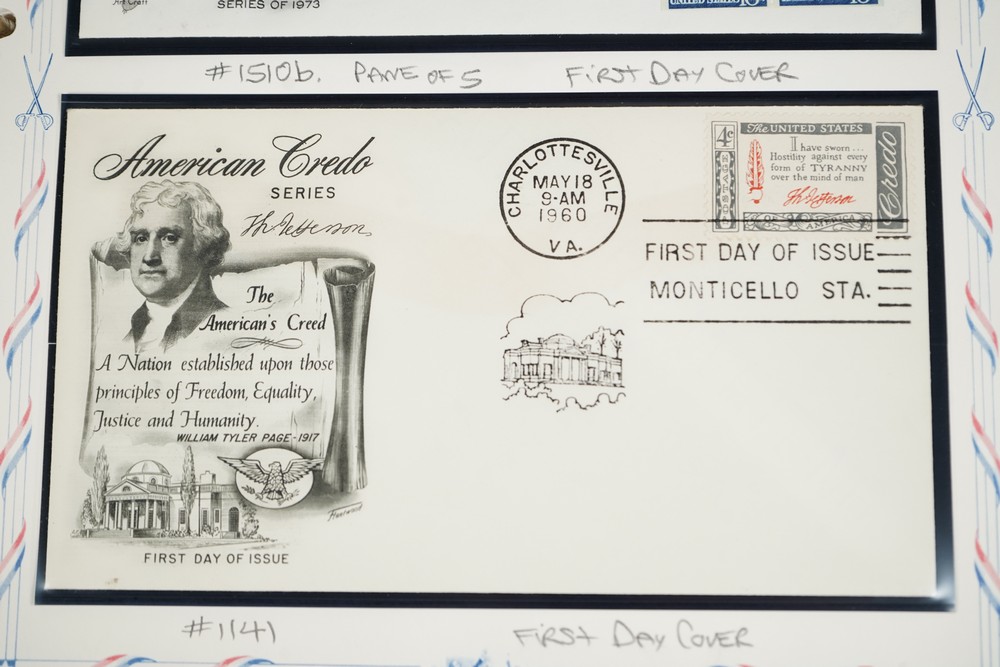 Art Craft
SERIES OF 1973
UNITED STATES 10c
#1510b. PANE OF 5 FIRST DAY COVER
American Credo
SERIES
Th Jefferson
The
American's Creed
A Nation established upon those
principles of Freedom, Equality,
Justice and Humanity.
WILLIAM TYLER PAGE-1917
FIRST DAY OF ISSUE
CHARLOTTESVILLE
MAY 18
9-AM
1960
VA.
4c
U.S. POSTAGE
The UNITED STATES
I have sworn...
Hostility against every
form of TYRANNY
over the mind of man
Th Jefferson
OF AMERICA
Credo
FIRST DAY OF ISSUE
MONTICELLO STA.
#1141 FIRST DAY COVER